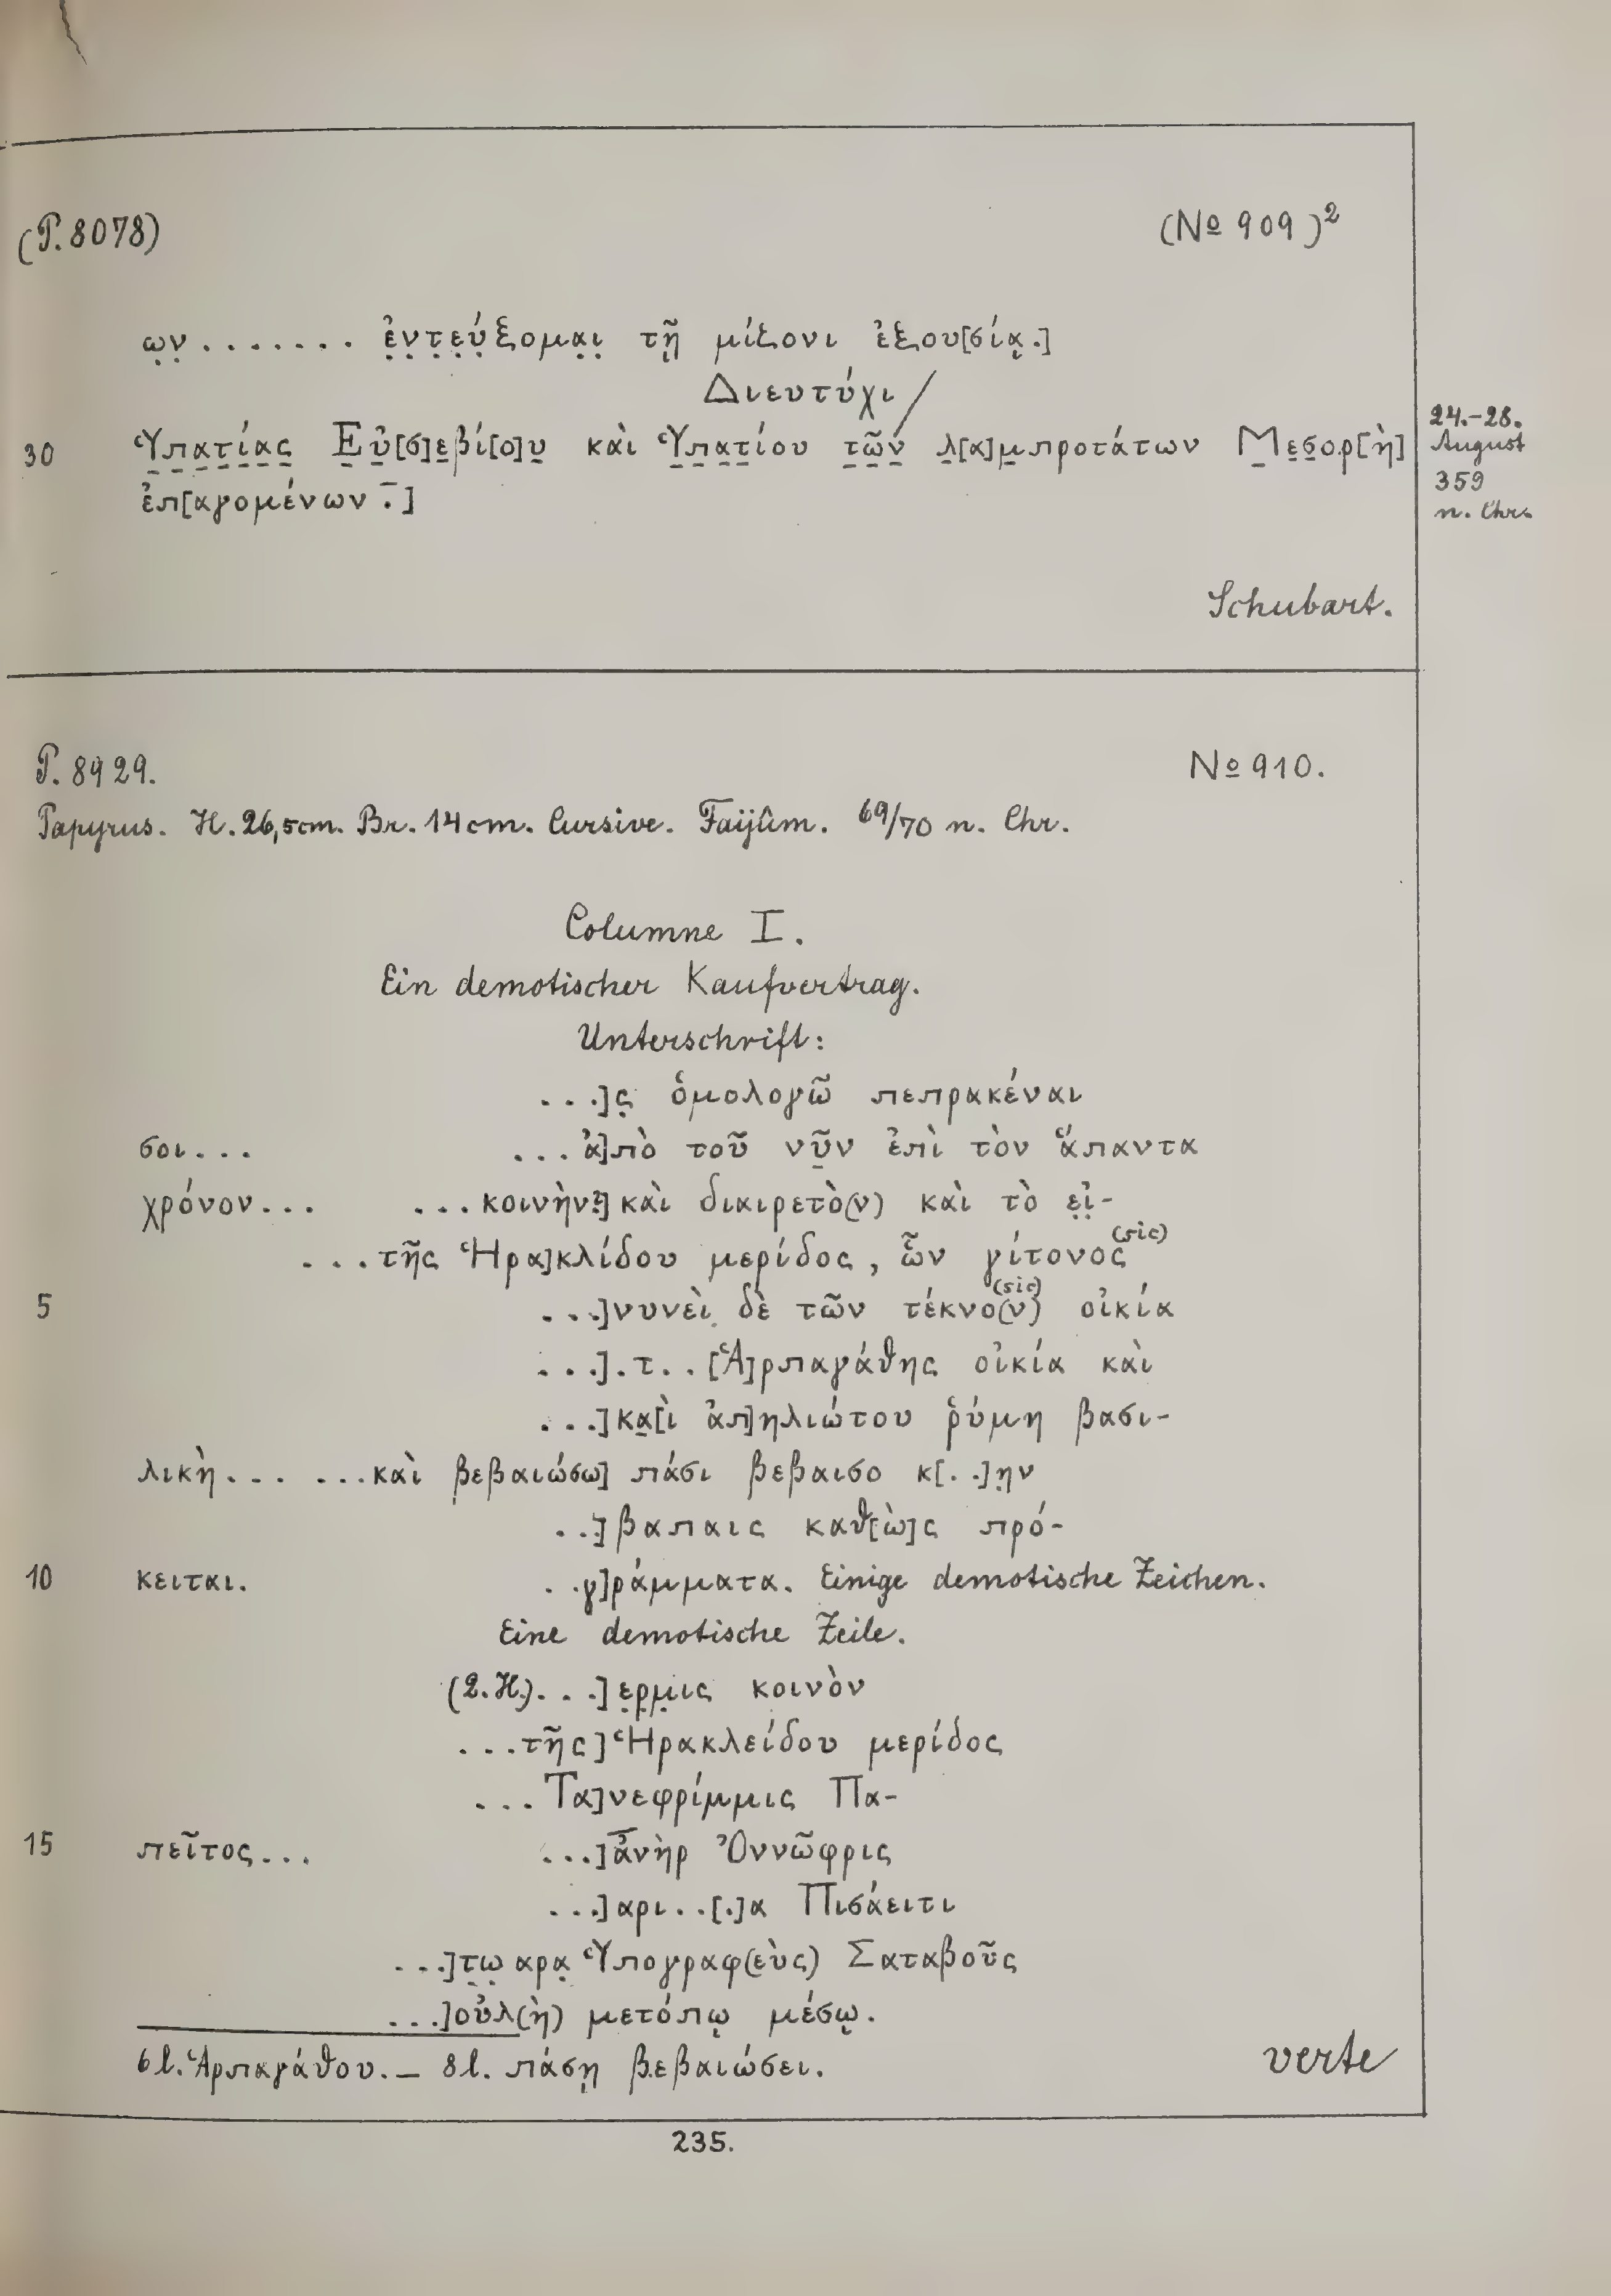 (P. 8078) (No 909)²
ω̣ν̣ . . . . . . . ἐ̣ν̣τ̣ε̣ύ̣ξομα̣ι̣ τῇ μίζονι ἐξου[σίᾳ.]
Διευτύχι /
30 Ὑ̣π̣α̣τ̣ί̣α̣ς̣ Ε̣ὐ̣[σ]ε̣βί[ο]υ̣ καὶ Ὑ̣π̣α̣τ̣ίου τ̣ῶ̣ν̣ λ̣[α]μ̣προτάτων Μ̣ε̣σ̣ορ[ὴ] 24.-28. August 359 n. Chr.
ἐπ[αγομένων .̄ ]
Schubart.
P. 8929. No 910.
Papyrus. H. 26,5cm. Br. 14cm. Cursive. Faijûm. 69/70 n. Chr.
Columne I.
Ein demotischer Kaufvertrag.
Unterschrift:
. . .]ς̣ ὁμολογῶ πεπρακέναι
σοι . . . . . . ἀ]πὸ τοῦ νῦ̣ν ἐπὶ τὸν ἅπαντα
χρόνον . . . . . . κοινὴν?] καὶ διαιρετὸ(ν) καὶ τὸ ε̣ἰ̣-
. . . τῆς Ἡρα]κλίδου μερίδος, ὧν γίτονος (sic)
5 . . .]νυνεὶ̣ δὲ τῶν τέκνο(ν) (sic) οἰκία
. . .] . τ . . [Ἁ]ρπαγάθης οἰκία καὶ
. . .]κα̣[ὶ ἀπ]ηλιώτου ῥύμη βασι-
λικὴ . . . . . . καὶ βεβαιώσω] πάσι βεβαισο κ[. .]η̣ν
. . .]βαπαις καθ[ὼ]ς πρό-
10 κειται. . . γ]ράμματα. Einige demotische Zeichen.
Eine demotische Zeile.
(2. H.) . . .]ε̣ρ̣μ̣ις κοινὸν
. . . τῆς] Ἡρακλείδου μερίδος
. . . Τα]νεφρίμμις Πα-
15 πεῖτος . . . . . .]ἀνὴρ Ὀννῶφρις
. . .]αρι . . [.]α Πισάειτι
. . .]τ̣ω̣ αρα̣ Ὑπογραφ(εὺς) Σαταβοῦς
. . .]οὐλ(ὴ) μετόπῳ μέσῳ.
6 l. Ἁρπαγάθου. — 8 l. πάσῃ βεβαιώσει. verte
235.